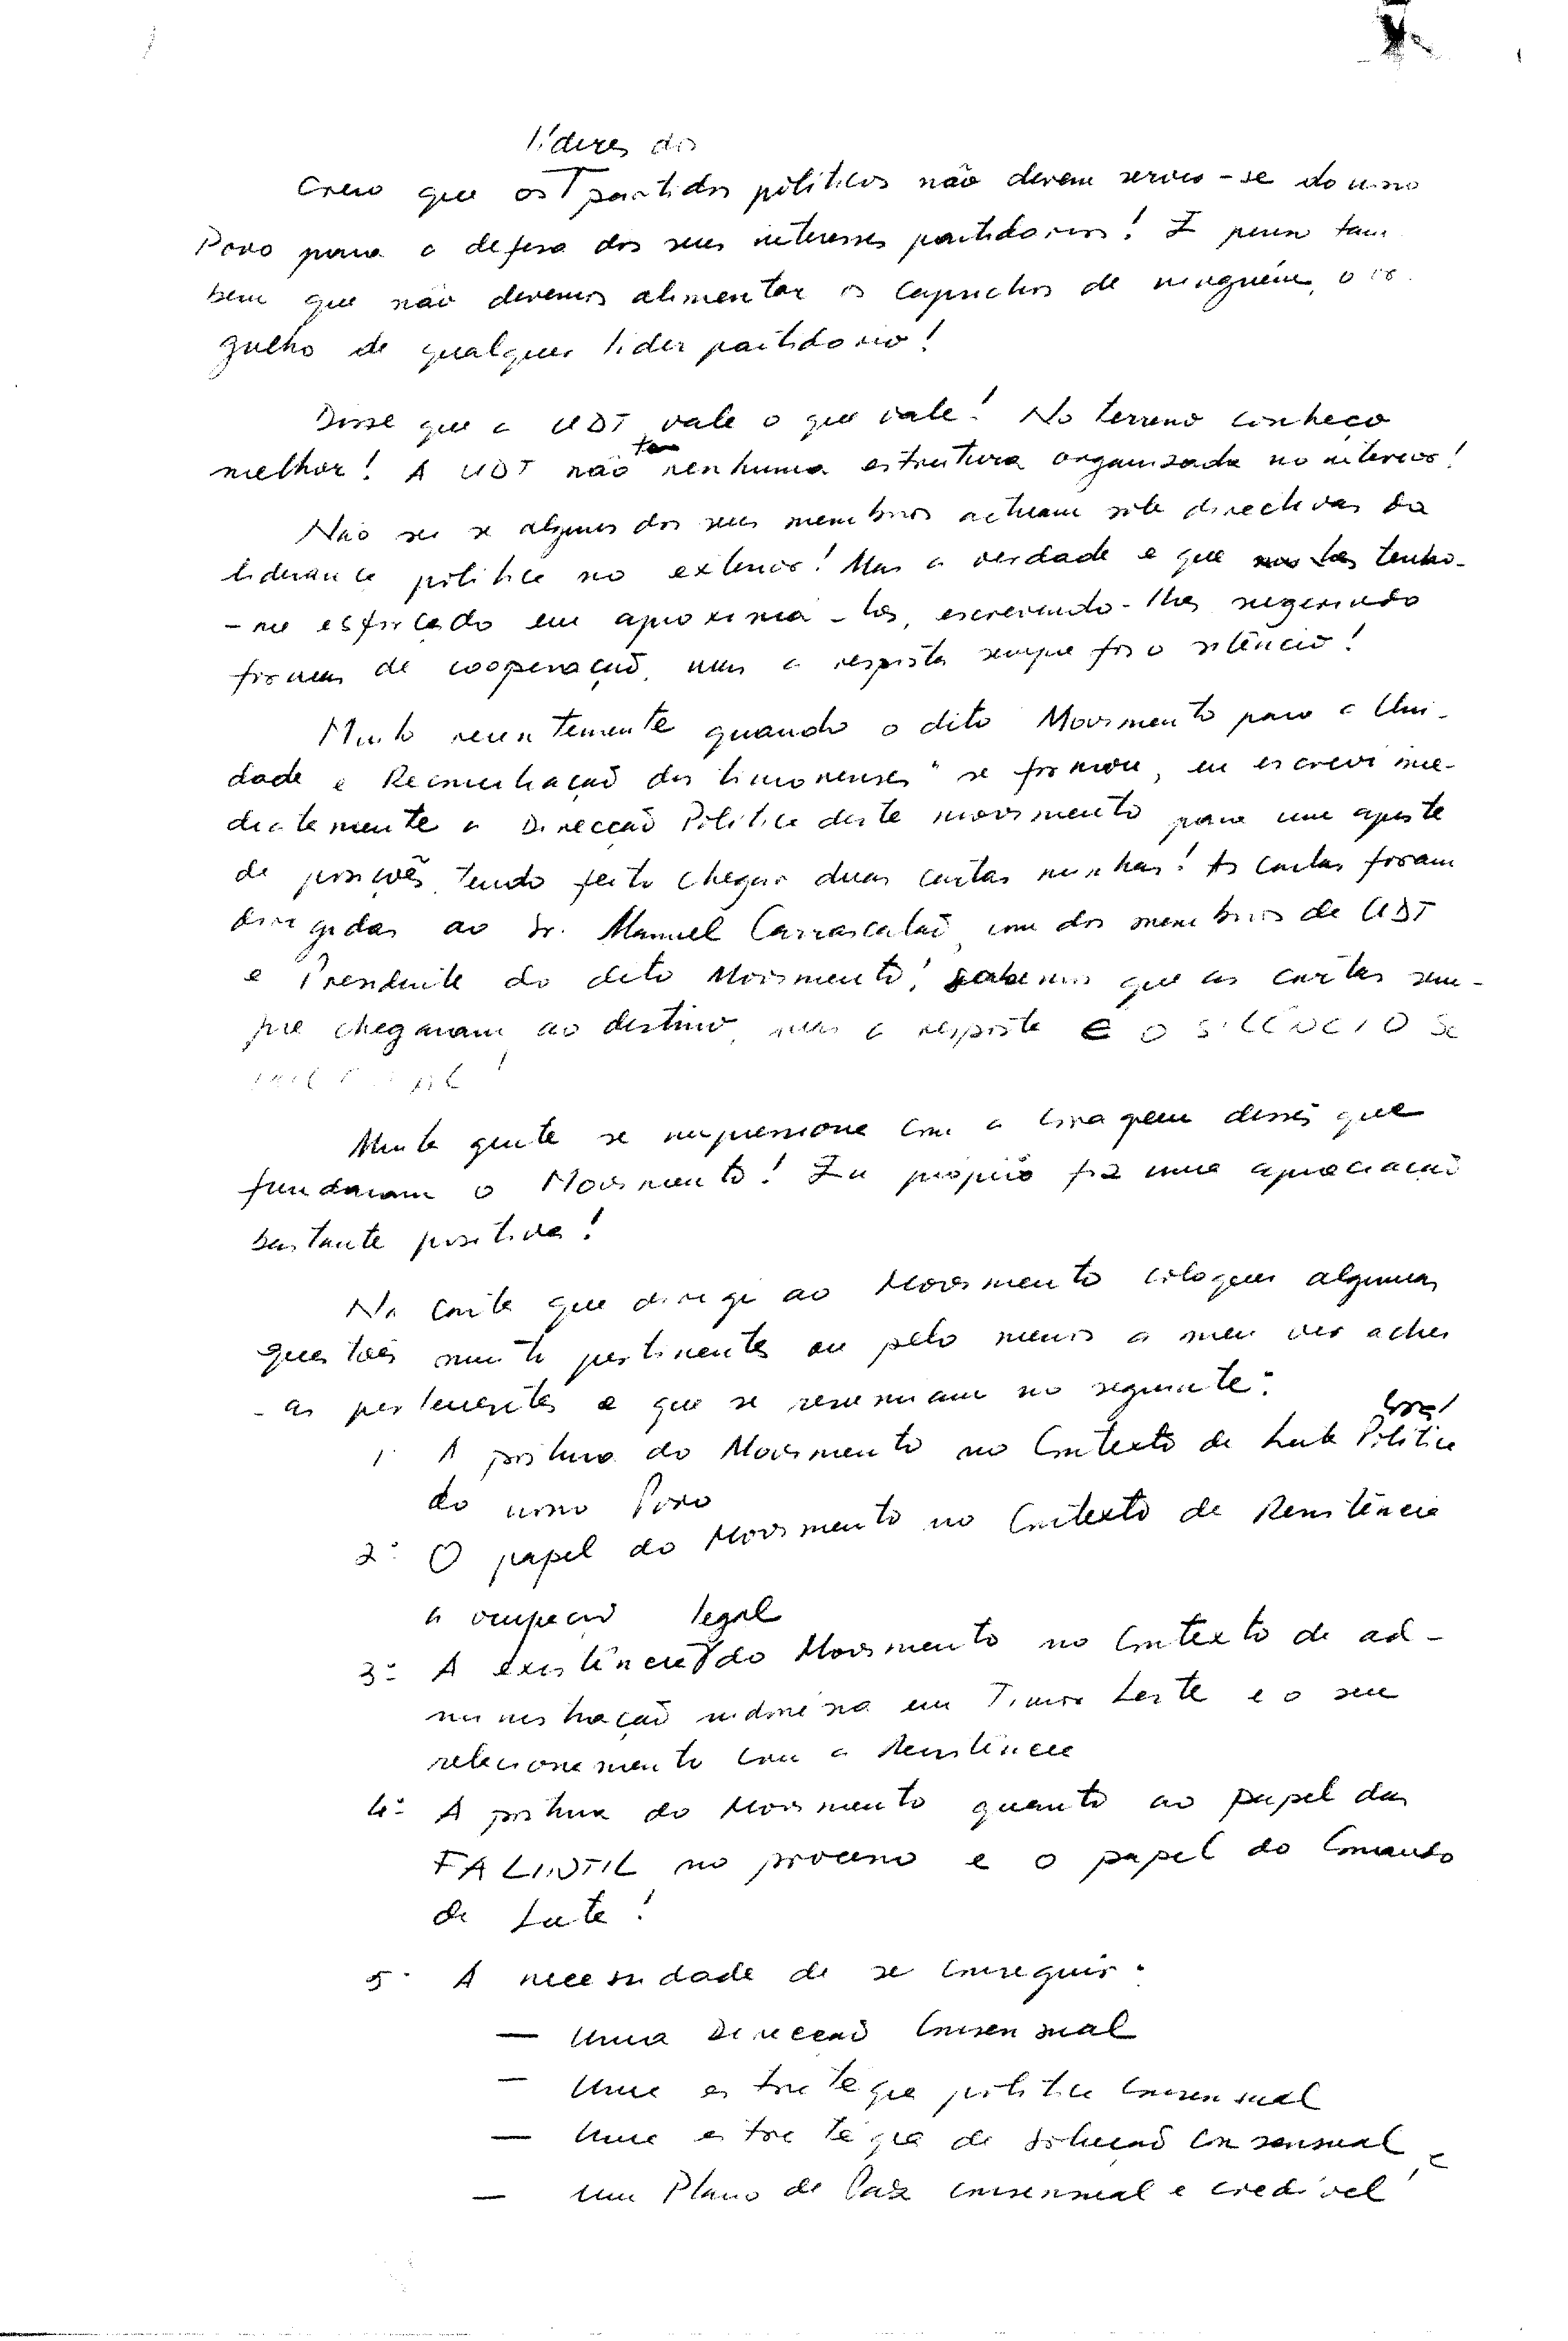 líderes dos
Creio que os partidos políticos não devem servir-se do nosso
Povo para a defesa dos seus interesses partidários! E penso tam
bem que não devemos alimentar os caprichos de ninguém, o or
gulho de qualquer lider partidário!
Disse que a UDT vale o que vale! No terreno conheço
tem
melhor! A UDT não nenhuma estrutura organizada no interior!
Não sei se alguns dos seus membros actuam sob directivas da
liderança política no exterior! Mas a verdade é que tenho-
-me esforçado em aproximá-los, escrevendo-lhes sugerindo
formas de cooperação, mas a resposta sempre foi o silêncio!
Muito recentemente quando o dito Movimento para a Uni-
dade e Reconciliação dos timorenses" se formou, eu escrevi ime-
diatamente a Direcção Política deste movimento para um ajuste
de posições, tendo feito chegar duas cartas minhas! As cartas foram
dirigidas ao Sr. Manuel Carrascalão, um dos membros da UDT
e Presidente do dito Movimento! Sabemos que as cartas sem-
pre chegaram ao destino, mas a resposta É O SILÊNCIO SE
Muita gente se impressiona com a coragem desses que
fundaram o Movimento! Eu próprio fiz uma apreciação
bastante positiva!
Na carta que dirigi ao Movimento coloquei algumas
questões muito pertinentes ou pelo menos a meu ver achei
-as pertinentes e que se resumiam no seguinte:
1º A postura do Movimento no Contexto da Luta Política
do nosso Povo
2º O papel do Movimento no Contexto da Resistência
a ocupação
legal
3º A existência do Movimento no Contexto da ad-
ministração indonésia em Timor Leste e o seu
relacionamento com a Resistência
4º A postura do Movimento quanto ao papel das
FALINTIL no processo e o papel do Comando
da Luta!
5º A necessidade de se conseguir:
— Uma Direcção Consensual
— Uma estratégia política consensual
— Uma estratégia de solução consensual e
— Um Plano de Paz consensual e credível